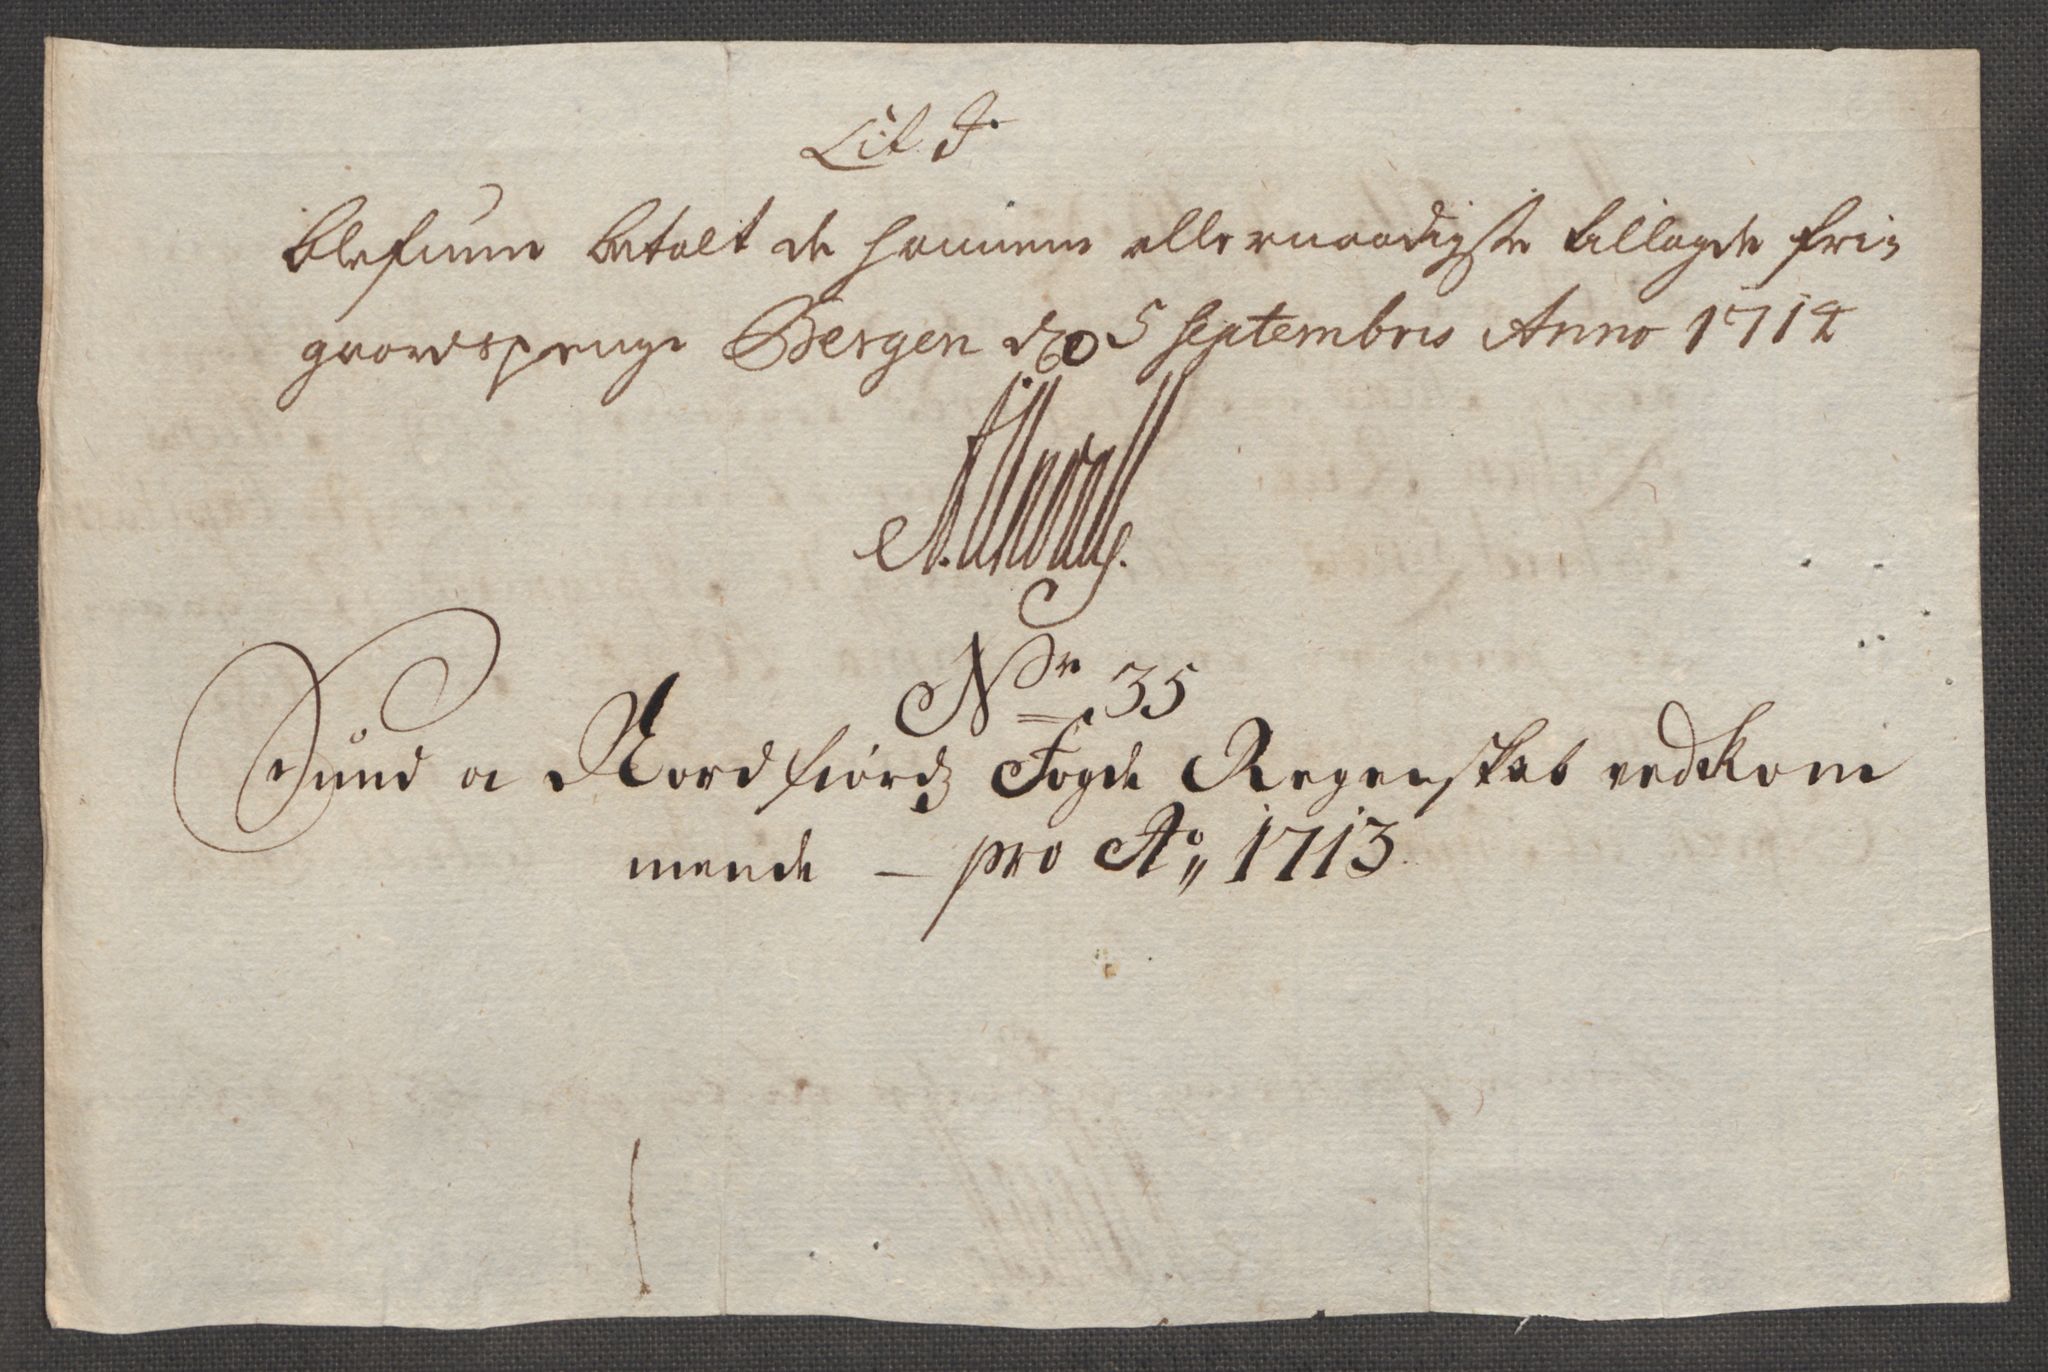 Lit J.
blefuen betalt de hannem allernaadigste tillagde frie
gaardspenge Bergen d: 5 Septembris Anno 1714
Nr 35
Sund og Nordfiords Fogde Regenskab vedkom
mende – pro Ao 1713